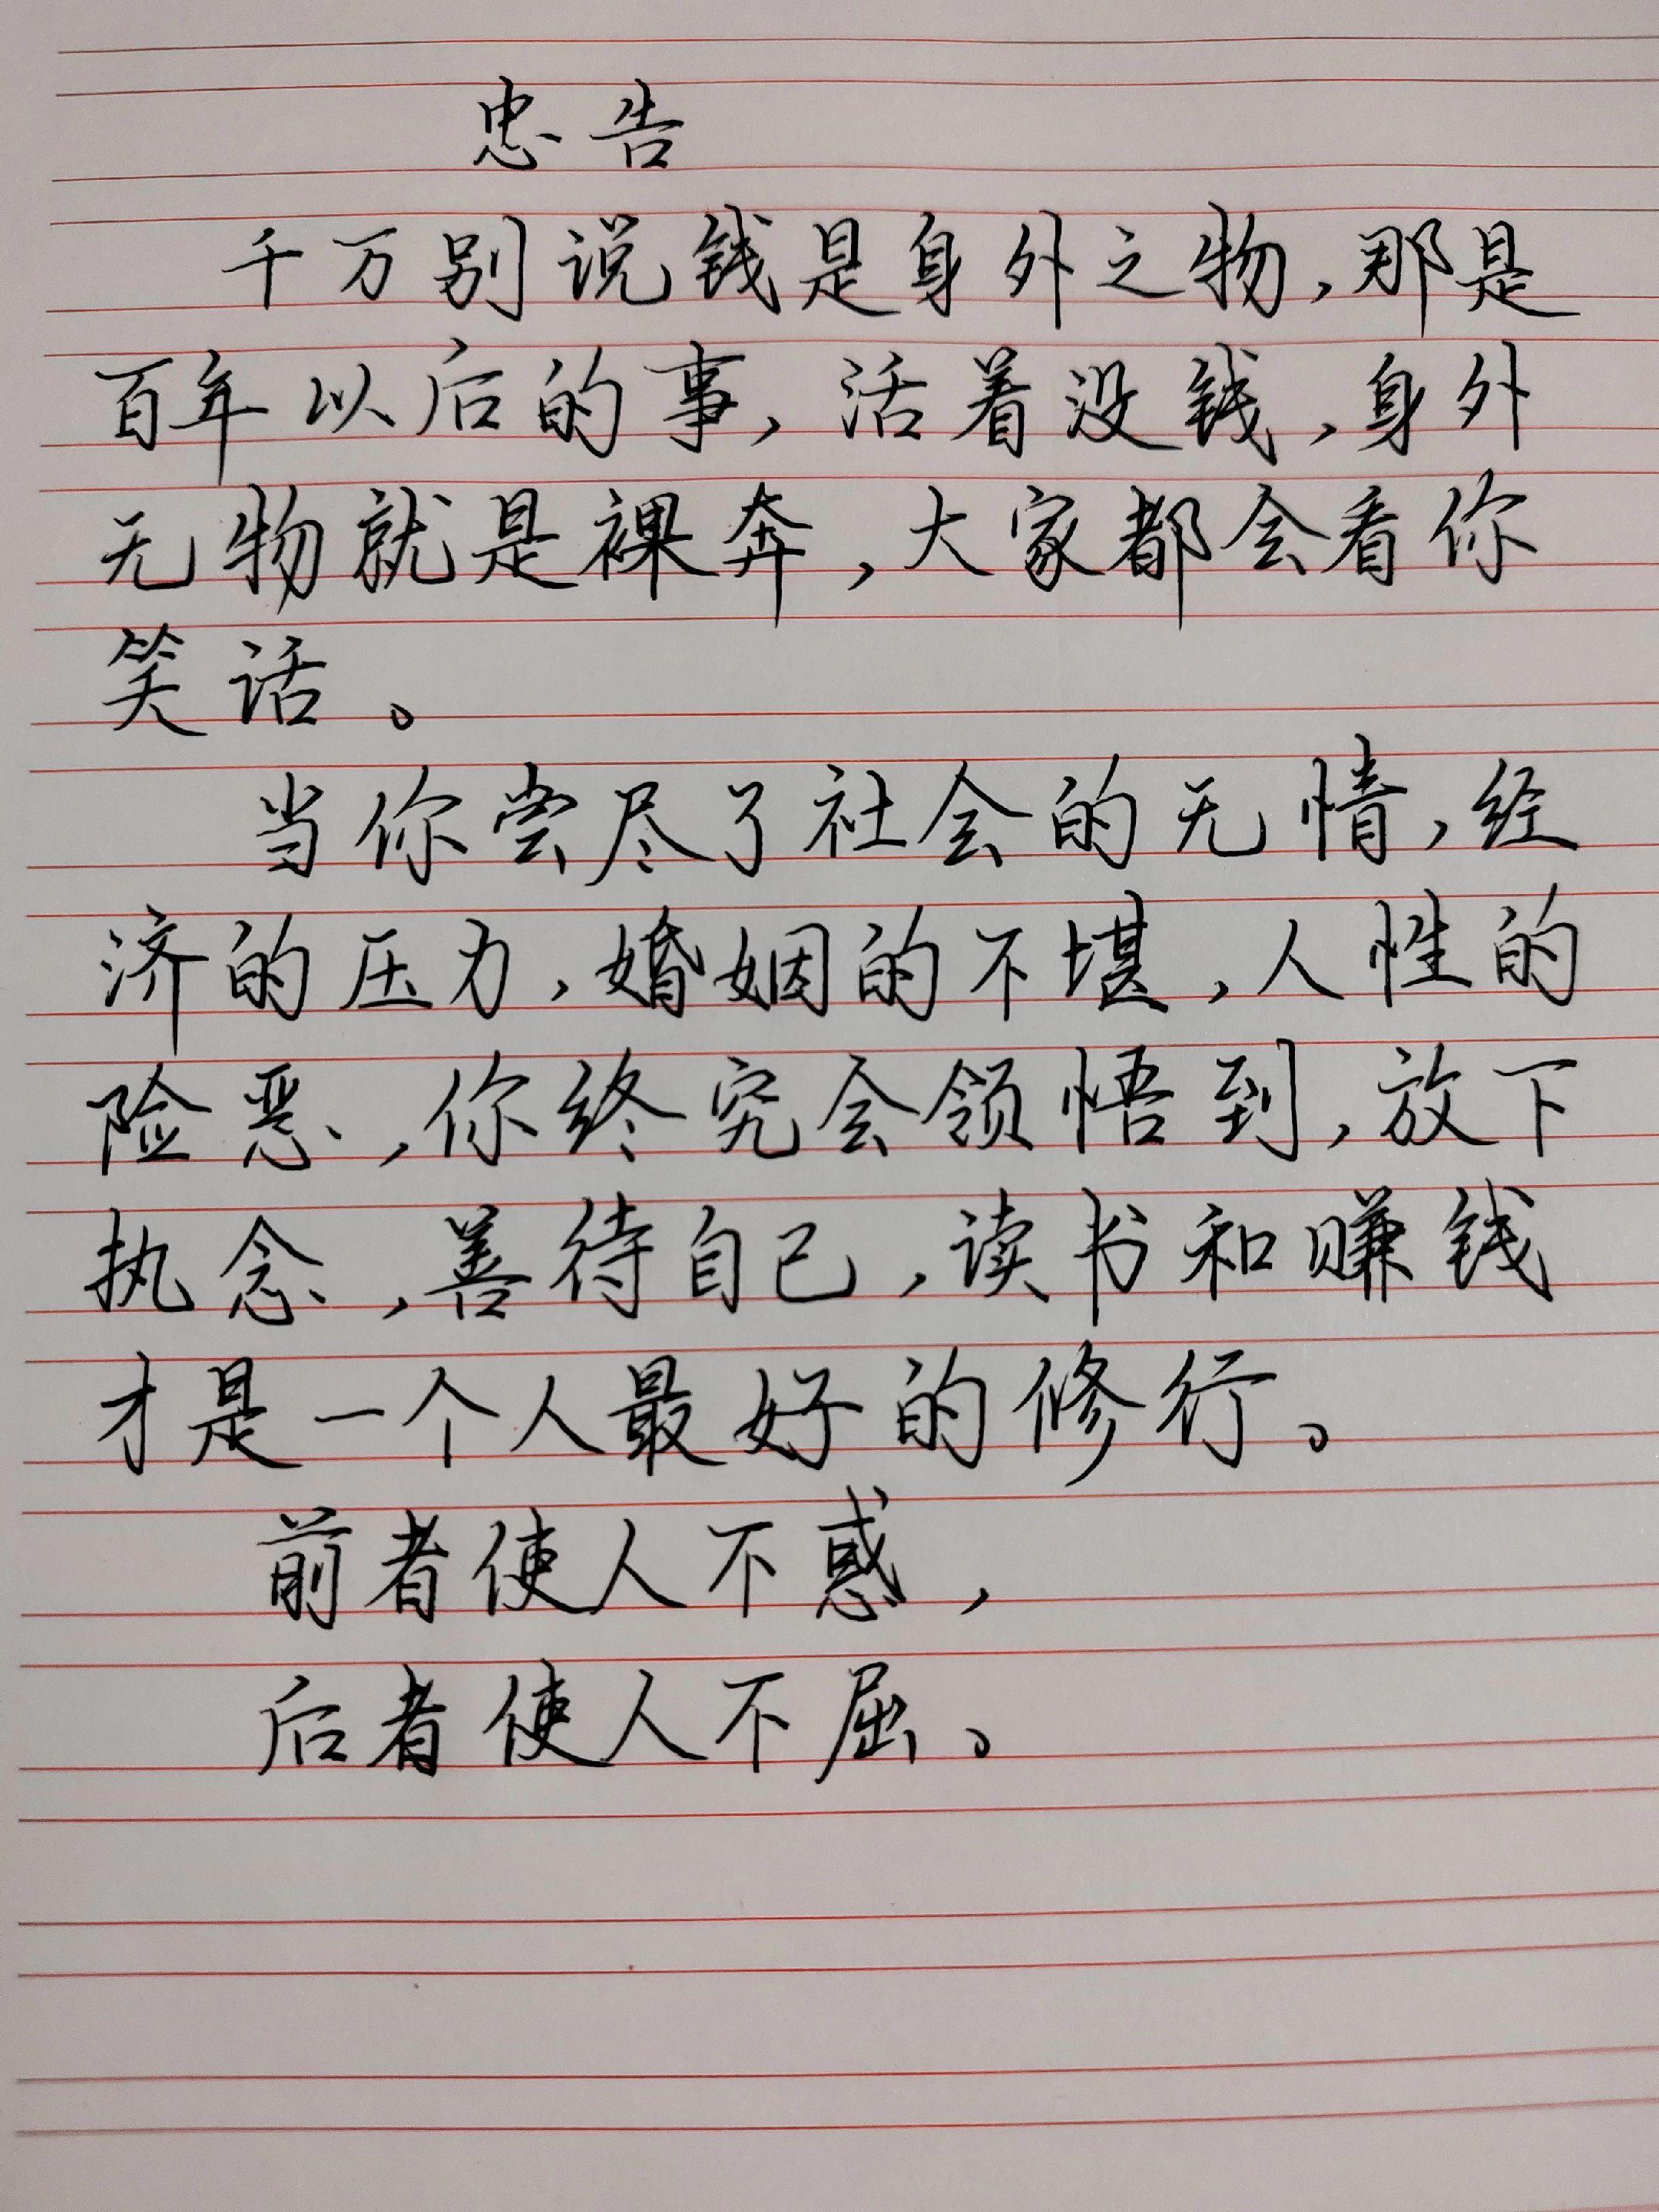 忠告
千万别说钱是身外之物，那是
百年以后的事，活着没钱，身外
无物就是裸奔，大家都会看你
笑话。
当你尝尽了社会的无情，经
济的压力，婚姻的不堪，人性的
险恶，你终究会领悟到，放下
执念，善待自己，读书和赚钱
才是一个人最好的修行。
前者使人不惑，
后者使人不屈。